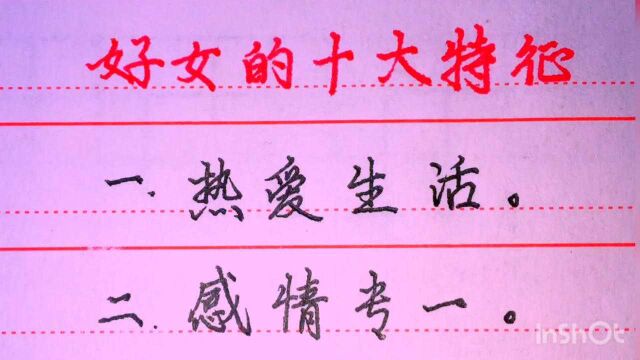 好女的十大特征
一.热爱生活。
二.感情专一。
InShOt